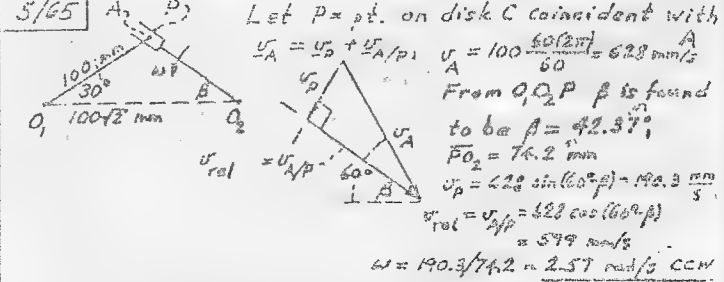 5/65
A, P
100 mm
30°
ωP
β
O₁ 100√2 mm O₂
Let P = pt. on disk C coincident with A
v_A = v_P + v_A/P; v_A = 100 60(2π)/60 = 628 mm/s
v_P
v_A
v_rel = v_A/P
60°
β
From O₁O₂P β is found
to be β = 42.37°;
PO₂ = 74.2 mm
v_P = 628 sin(60°-β) = 190.3 mm/s
v_rel = v_A/P = 628 cos(60°-β)
= 599 mm/s
ω = 190.3/74.2 = 2.57 rad/s CCW